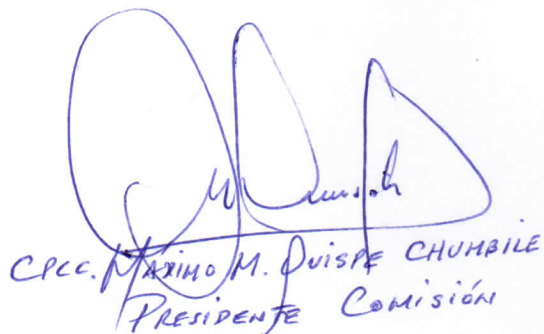 CPCC. MÁXIMO M. QUISPE CHUMBILE
PRESIDENTE COMISIÓN